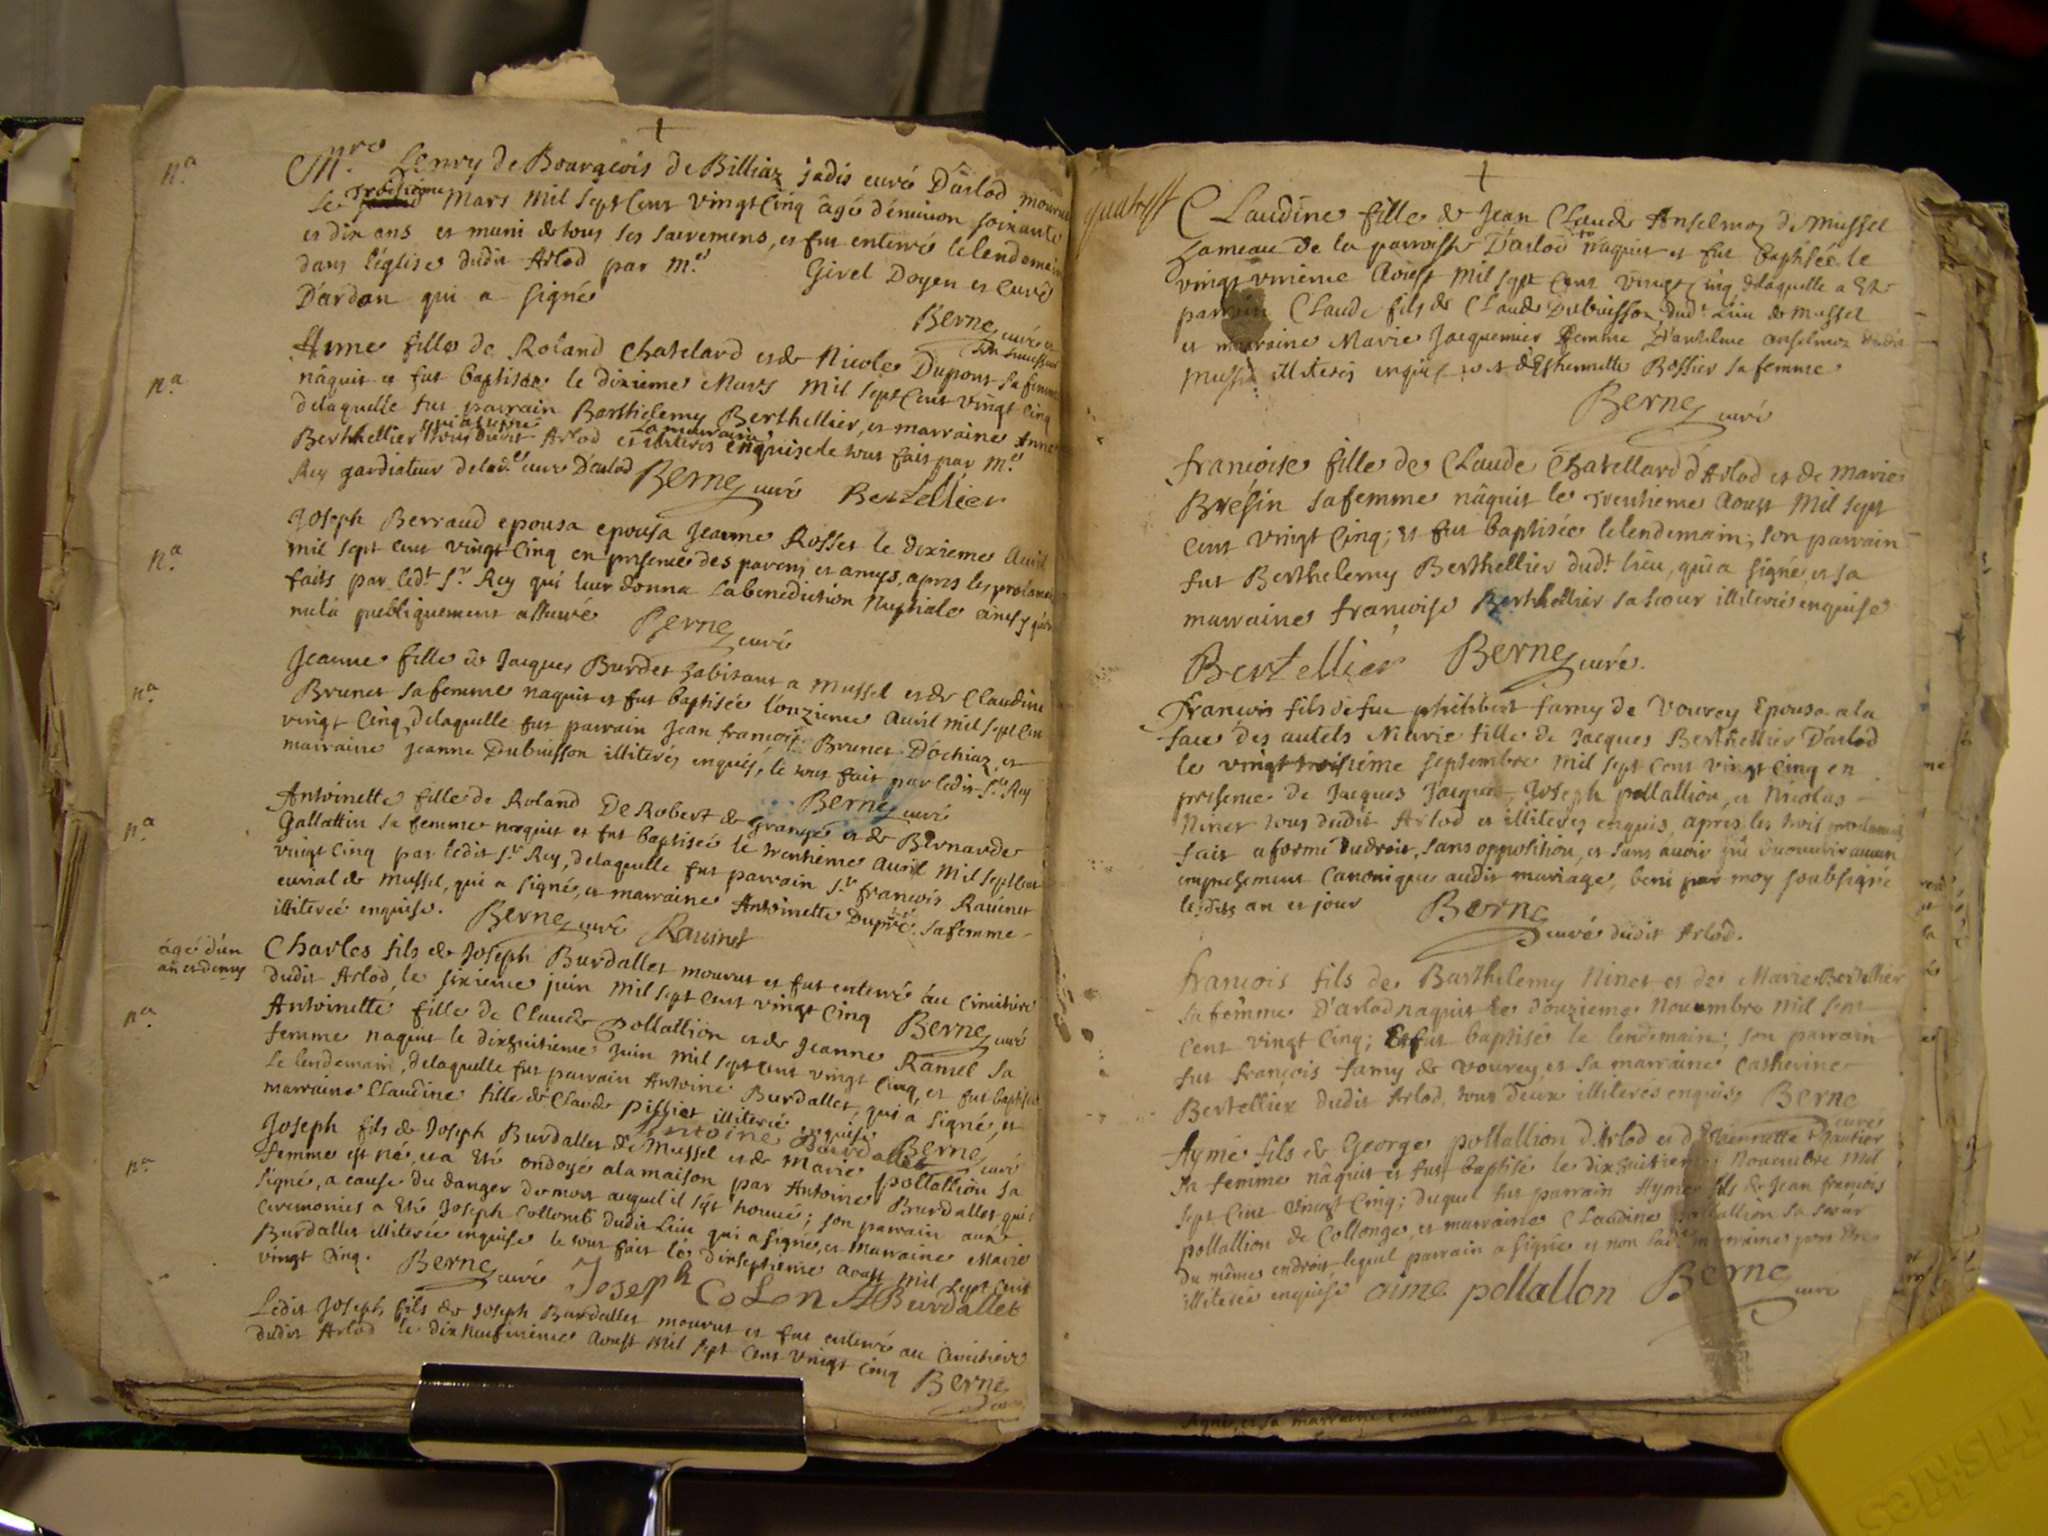 +
n.a
M.re Henry de Bourgeois de Billiaz jadis curé D'arlod mourut
Le Troisieme Mars mil sept Cent vingt Cinq âgé d'environ soixante
et dix ans et muni de tous ses sacremens, et fut enterré le lendemain
dans l'église dudit Arlod par M.e Girel Doyen et Curé
D'ardon qui a signé
Berne curé
n.a
Anne fille de Roland Chatelard et de Nicole Dupont sa femme
nâquit et fut baptisée le dixieme Mars mil sept Cent vingt Cinq
delaquelle fut parrain Barthelemy Berthellier, et marraine Anne
Berthellier tous dudit Arlod qui a signé et la marraine illiterée enquise le tout fait par M.e
Rey gardiateur de lad.e cure D'arlod Berne curé Bertellier
n.a
Joseph Berraud epousa epousa Jeanne Rosset le dixieme Avril
mil sept Cent vingt Cinq en presence des parens et amys, apres les proclam
faits par led.t S.r Rey qui leur donna la benediction Nuptiale ainsy qu'on
m'ela publiquement assuré Berne curé
n.a
Jeanne fille de Jacques Burdet habitant a Mussel et de Claudine
Brunet sa femme naquit et fut baptisée l'onzieme Avril mil sept Cent
vingt Cinq, delaquelle fut parrain Jean françois Brunet D'ochiaz, et
marraine Jeanne Dubuisson illiterés enquis, le tout fait par ledit S.r Rey
Berne curé
n.a
Antoinette fille de Roland De Robert de Grange et de Bernarde
Gallattin sa femme naquit et fut baptisée le trentieme Avril mil sept Cent
vingt Cinq par ledit S.r Rey, delaquelle fut parrain S.r françois Ravinet
curial de Mussel, qui a signé, et marraine Antoinette Dupré sa femme
illiterée enquise. Berne curé Ravinet
âgé d'un
an et demy
Charles fils de Joseph Burdallet mourut et fut enterré au Cimitiere
dudit Arlod, le sixieme juin mil sept Cent vingt Cinq Berne curé
n.a
Antoinette fille de Claude pollattion et de Jeanne Ramel sa
femme naquit le dixhuitieme juin mil sept cent vingt Cinq, et fut baptisée
le lendemain, delaquelle fut parrain Antoine Burdallet, qui a signé, et
marraine Claudine fille de Claude pilliet illiterée enquise
Antoine Burdallet Berne curé
n.a
Joseph fils de Joseph Burdallet de Mussel et de Marie pollattion sa
femme est né, et a Eté ondoyé a la maison par Antoine Burdallet qui a
signé, a cause du danger de mort auquel il s'est trouvé; son parrain aux
Ceremonies a Eté Joseph Collomb dudit Lieu qui a signé, et Marraine Marie
Burdallet illiterée enquise le tout fait le dixseptieme aoust mil sept Cent
vingt Cinq. Berne curé Joseph CoLon A Burdallet
Ledit Joseph fils de Joseph Burdallet mourut et fut enterré au Cimitiere
dudit Arlod le dixneufvieme Aoust mil sept Cent vingt Cinq Berne
+
CLaudine fille de Jean CLaude Anselmoz de Mussel
hameau de la parroisse D'arlod naquit et fut baptisée le
vingt unieme Aoust mil sept Cent vingt Cinq delaquelle a Eté
parrain CLaude fils de CLaude Dubuisson dud.t Lieu de Mussel
et marraine Marie Jacquemier femme D'antelme anselmoz dudit
Mussel illiterés enquis et d'Estiennette Bossier sa femme
Berne curé
françoise fille de CLaude Chatellard d'Arlod et de Marie
Bresin sa femme nâquit le trentieme Aoust mil sept
Cent vingt Cinq; et fut baptisée le lendemain; son parrain
fut Berthelemy Berthellier dud.t lieu, qui a signé et sa
marraine françoise Berthellier sa soeur illiterée enquise
Bertellier Berne curé.
françois fils de feu philibert famy de Vouvey Epousa a la
face des autels Marie fille de Jacques Berthellier D'arlod
le vingt troisieme septembre mil sept cent vingt Cinq en
presence de Jacques Jacquet, Joseph pollattion, et Nicolas
Ninet tous dudit Arlod et illiterés enquis, apres les trois proclamats
fait a forme du droit, sans opposition, et sans avoir pû decouvrir aucun
empechement Canonique audit mariage, beni par moy soubsigné
le dits an et jour Berne
curé dudit Arlod.
françois fils de Barthelemy Ninet et de Marie Bertellier
sa femme D'arlod naquit le douzieme Novembre mil sept
cent vingt Cinq; Et fut baptisé le lendemain; son parrain
fut françois famy de Vouvey, et sa marraine Catherine
Bertellier dudit Arlod, tous deux illiterés enquis Berne
curé
Aymé fils de George pollattion d'Arlod et d'Estiennette Gautier
sa femme nâquit et fut baptisé le dixhuitieme Novembre mil
sept Cent vingt Cinq; duquel fut parrain Aymé fils de Jean françois
pollattion de Collonge, et marraine CLaudine pollattion sa soeur
du même endroit, lequel parrain a signé et non lad.e marraine pour Etre
illiterée enquise aime pollallon Berne curé